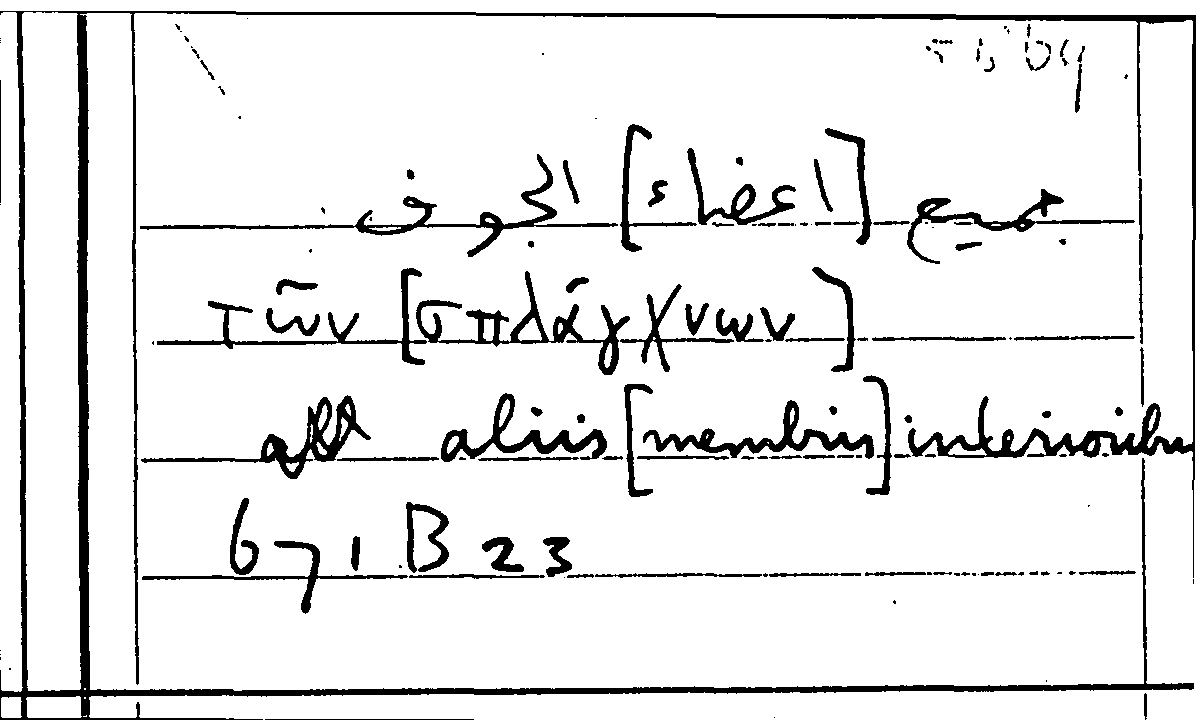 جميع [اعضاء] الجوف
τῶν [σπλάγχνων]
aliis [membris] interioribu
671 B 23